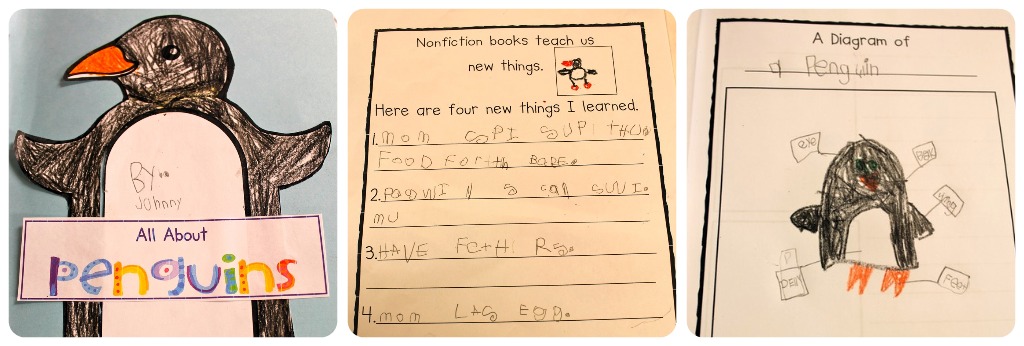 BY..
Johnny
All About
Penguins
Nonfiction books teach us
new things.
Here are four new things I learned.
1. mom SPI SUPI THU
FOOD FOr th BABE.
2. PaGWI N S can SWI.
mU
3. HAVE FethI Rs.
4. mom LAS EGG.
A Diagram of
a Penguin
eye
wing
Feet